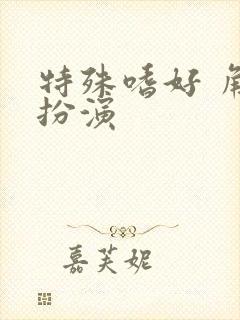 特殊嗜好
扮演
嘉芙妮